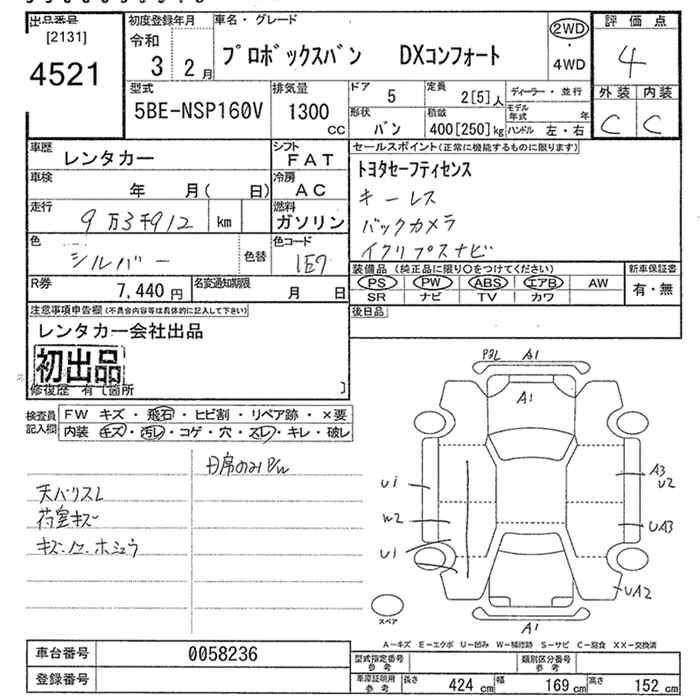 出品番号
[2131]
4521
初度登録年月
令和
3 2月
車名・グレード
プロボックスバン DXコンフォート
2WD
・
4WD
評価点
4
外装 内装
C C
型式
5BE-NSP160V
排気量
1300
CC
ドア 5
定員 2[5]人
ディーラー・並行
形状 バン
積載 400[250]kg
モデル年式 年
ハンドル 左・右
車歴 レンタカー
シフト FAT
車検 年 月( 日)
冷房 AC
走行 9万3千912 km
燃料 ガソリン
色 シルバー
色替
色コード 1E7
R券 7,440円
名変通知期限 月 日
セールスポイント(正常に機能するものに限ります)
トヨタセーフティセンス
キーレス
バックカメラ
イクリプスナビ
装備品(純正品に限り○をつけてください)
新車保証書
PS PW ABS エアB AW
SR ナビ TV カワ
有・無
後日品
注意事項申告欄(不具合内容等は具体的に記入して下さい)
レンタカー会社出品
初出品
修復歴 有[箇所 ]
検査員記入欄
FW キズ・飛石・ヒビ割・リペア跡・×要
内装 キズ・汚レ・コゲ・穴・スレ・キレ・破レ
日席のみP/W
天バリスレ
荷室キズ
キズ、ノケ、ホシュウ
P3L A1
A1
U1
W2
U1
A3
U2
UA3
UA2
A1
スペア
A-キズ E-エクボ U-凹み W-補修跡 S-サビ C-腐食 XX-交換済
車台番号 0058236
登録番号
型式指定番号 参考
類別区分番号 参考
車庫証明用 参考
長さ 424cm
幅 169cm
高さ 152cm